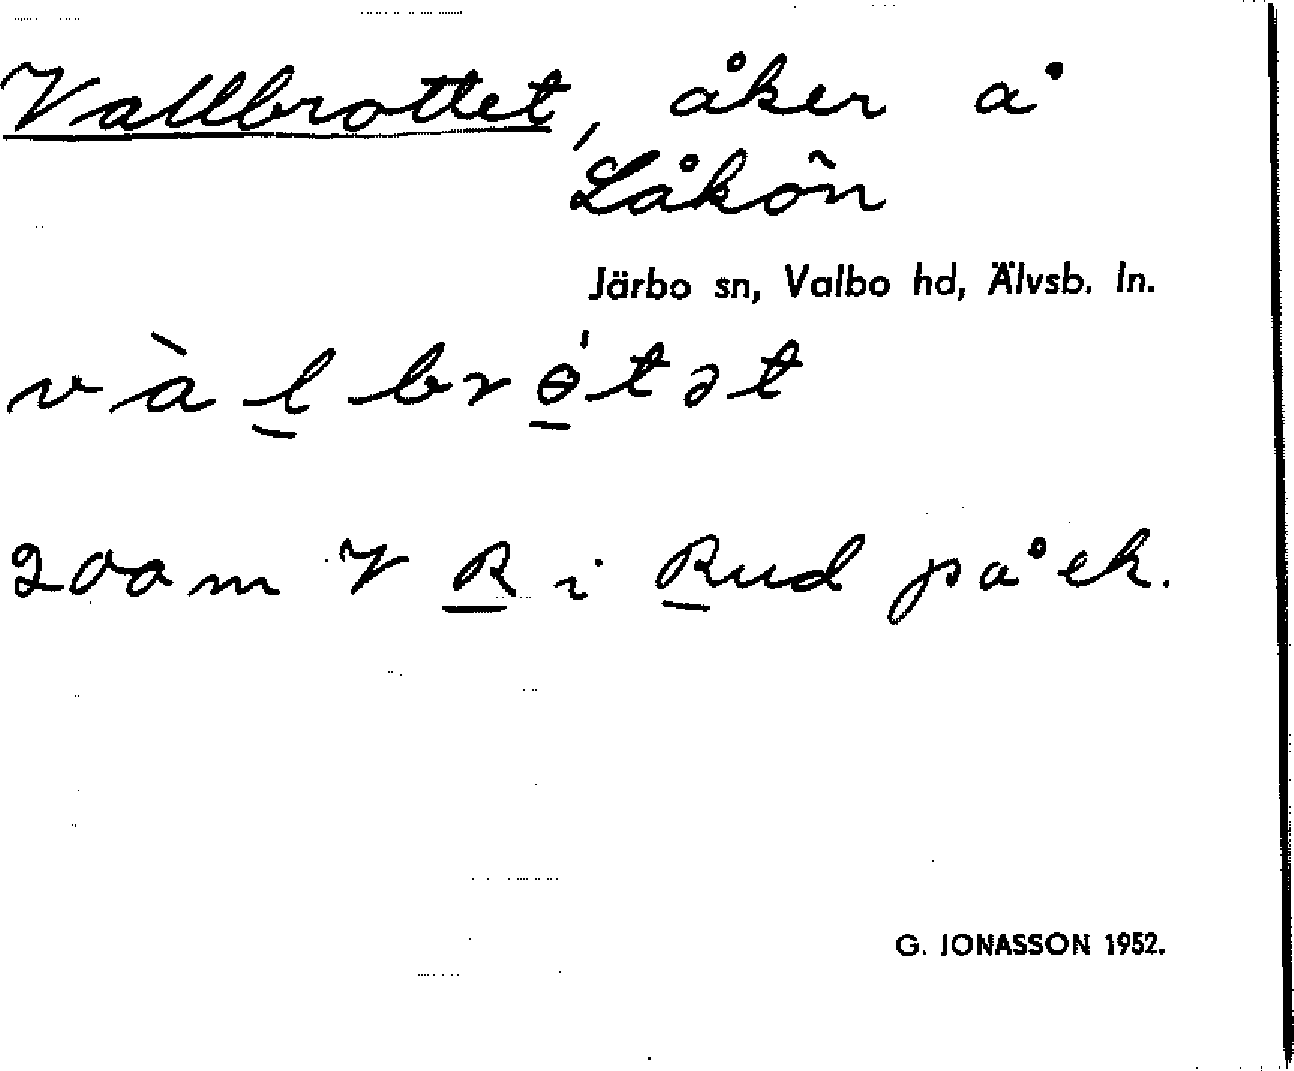 Vallbrottet, åker å
Låkön
Järbo sn, Valbo hd, Älvsb. ln.
vàl̠brɵ̠́tət
200 m V R i Rud på ek.
G. JONASSON 1952.